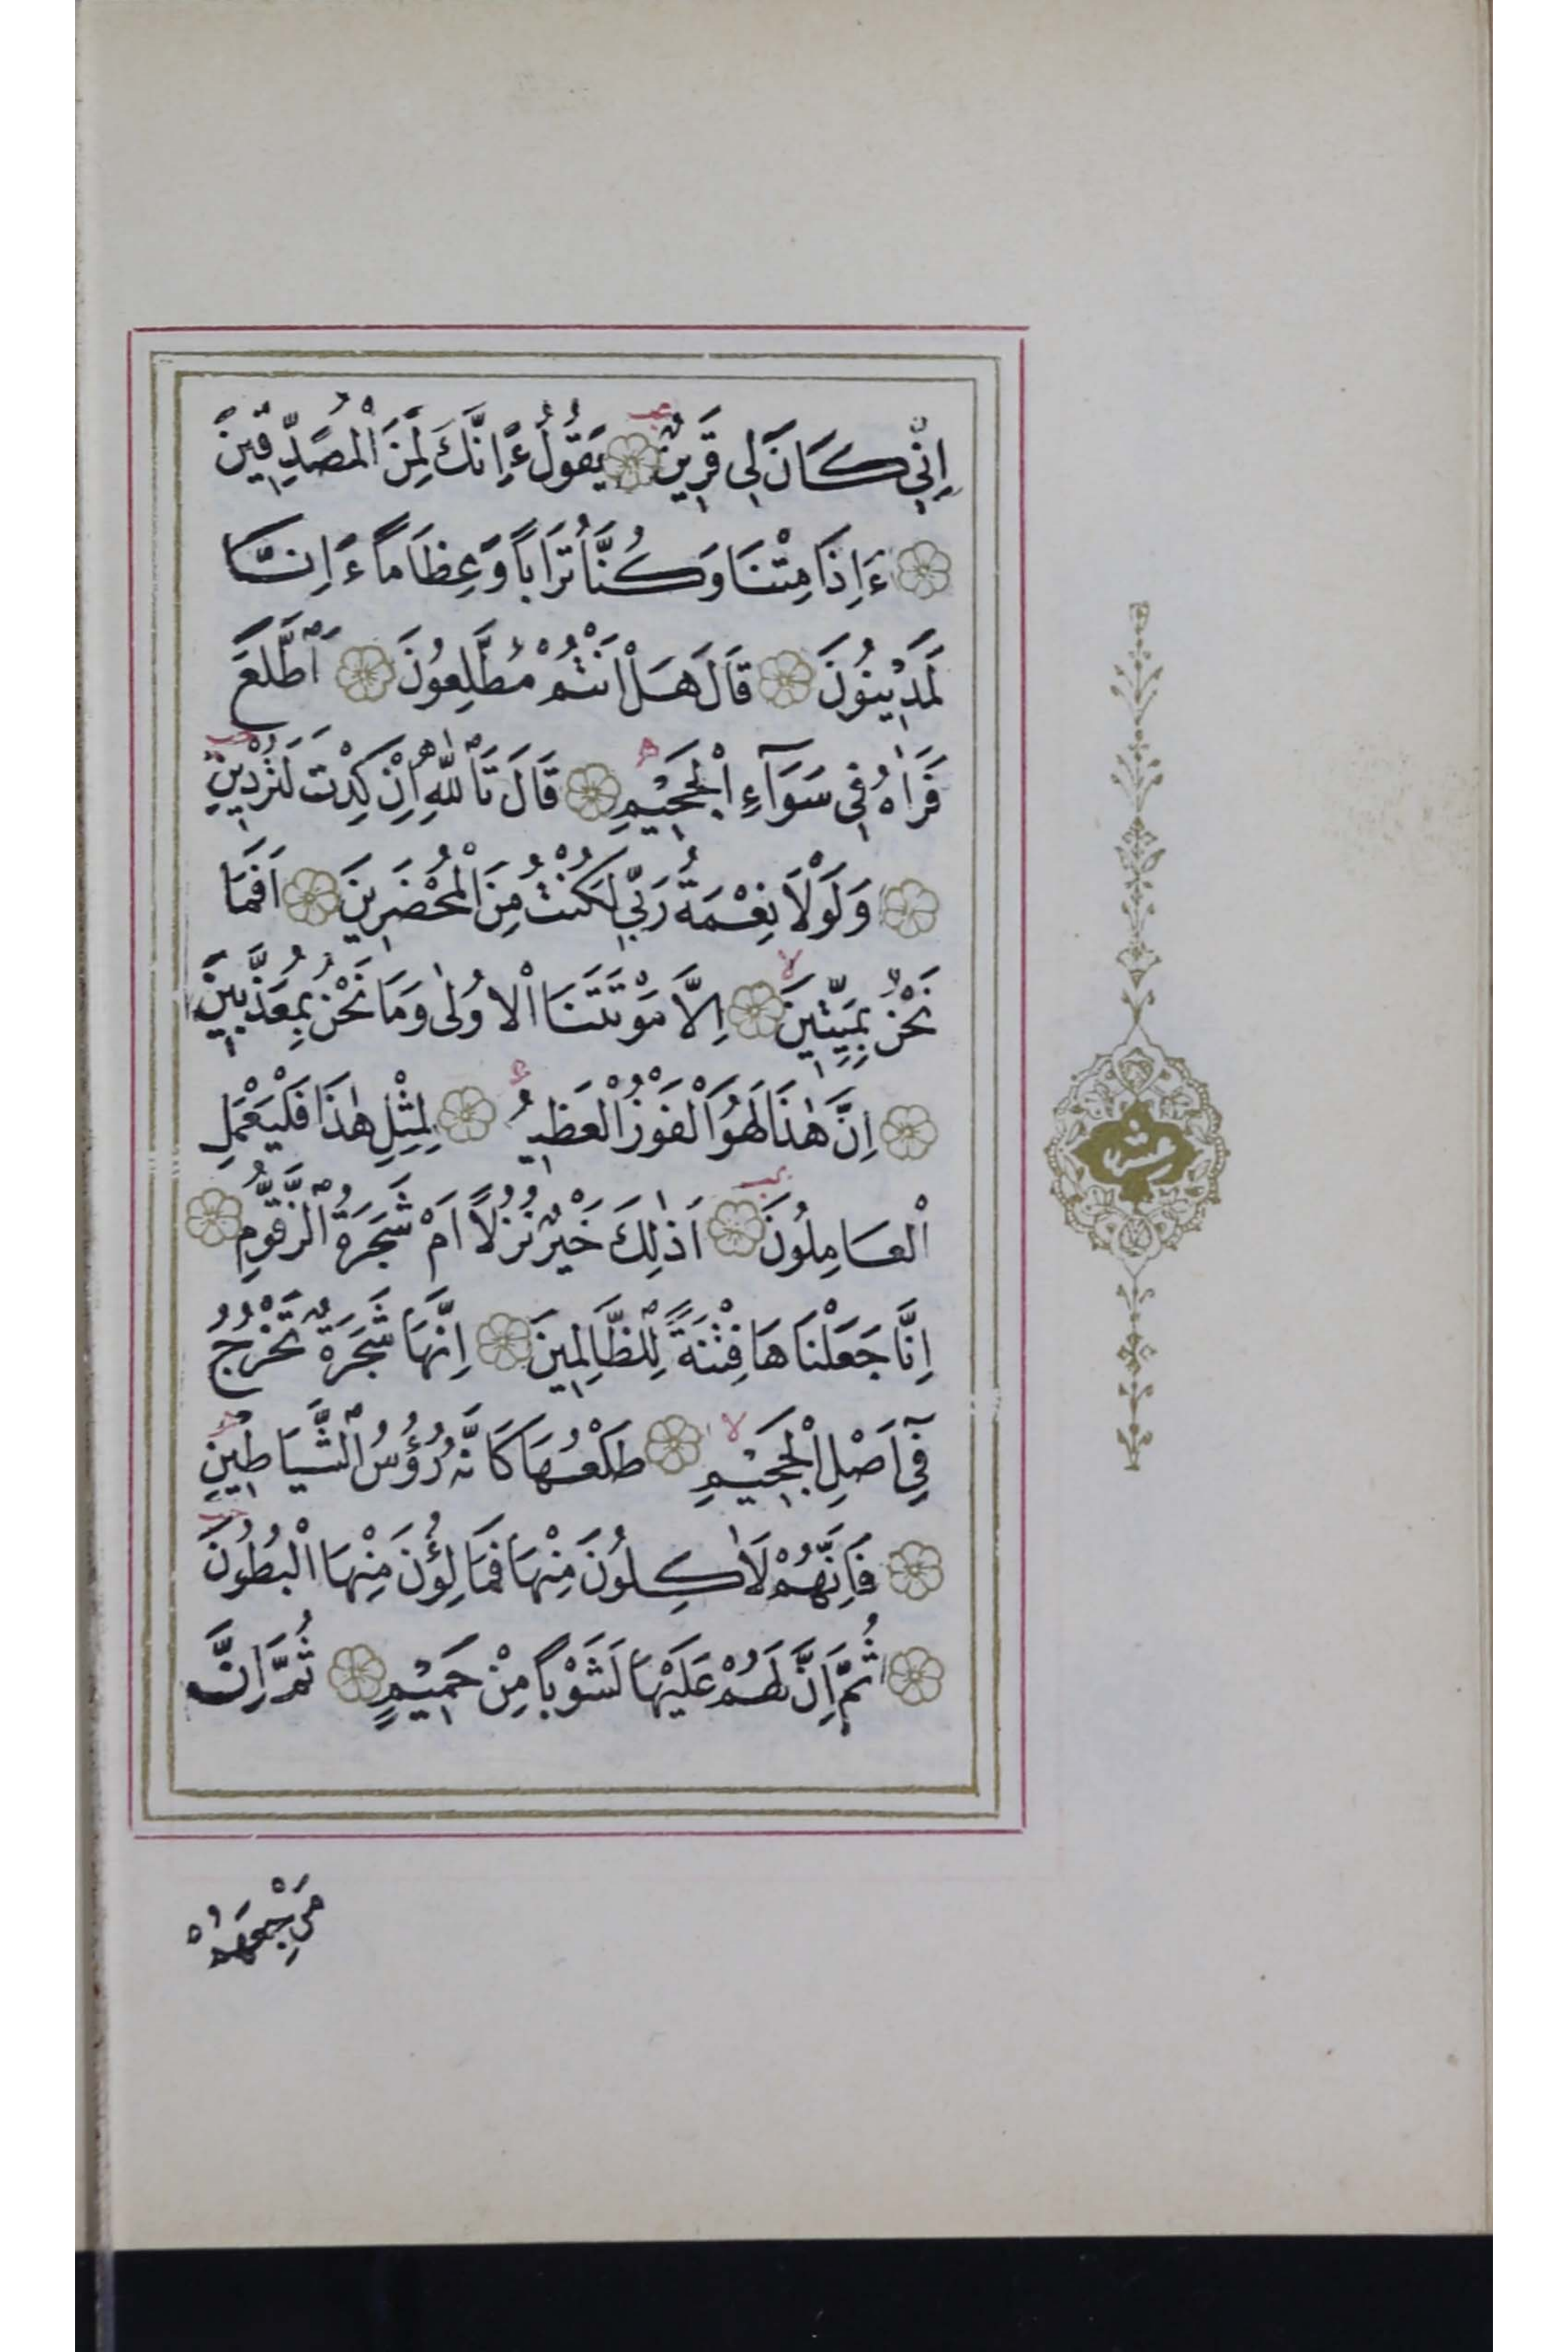 اِنّٖي كَانَ لٖي قَرٖينٌ يَقُولُ ءَاِنَّكَ لَمِنَ الْمُصَدِّقٖينَ
ءَاِذَا مِتْنَا وَكُنَّا تُرَاباً وَعِظَاماً ءَاِنَّا
لَمَدٖينُونَ قَالَ هَلْ اَنْتُمْ مُطَّلِعُونَ اَطَّلَعَ
فَرَاٰهُ فٖي سَوَآءِ الْجَحٖيمِ قَالَ تَاللّٰهِ اِنْ كِدْتَ لَتُرْدٖينِ
وَلَوْلَا نِعْمَةُ رَبّٖي لَكُنْتُ مِنَ الْمُحْضَرٖينَ اَفَمَا
نَحْنُ بِمَيِّتٖينَ اِلَّا مَوْتَتَنَا الْاُولٰى وَمَا نَحْنُ بِمُعَذَّبٖينَ
اِنَّ هٰذَا لَهُوَ الْفَوْزُ الْعَظٖيمُ لِمِثْلِ هٰذَا فَلْيَعْمَلِ
الْعَامِلُونَ اَذٰلِكَ خَيْرٌ نُزُلاً اَمْ شَجَرَةُ الزَّقُّومِ
اِنَّا جَعَلْنَاهَا فِتْنَةً لِلظَّالِمٖينَ اِنَّهَا شَجَرَةٌ تَخْرُجُ
فٖٓي اَصْلِ الْجَحٖيمِ طَلْعُهَا كَاَنَّهُ رُؤُسُ الشَّيَاطٖينِ
فَاِنَّهُمْ لَاٰكِلُونَ مِنْهَا فَمَالِؤُنَ مِنْهَا الْبُطُونَ
ثُمَّ اِنَّ لَهُمْ عَلَيْهَا لَشَوْباً مِنْ حَمٖيمٍ ثُمَّ اِنَّ
مَرْجِعَهُمْ